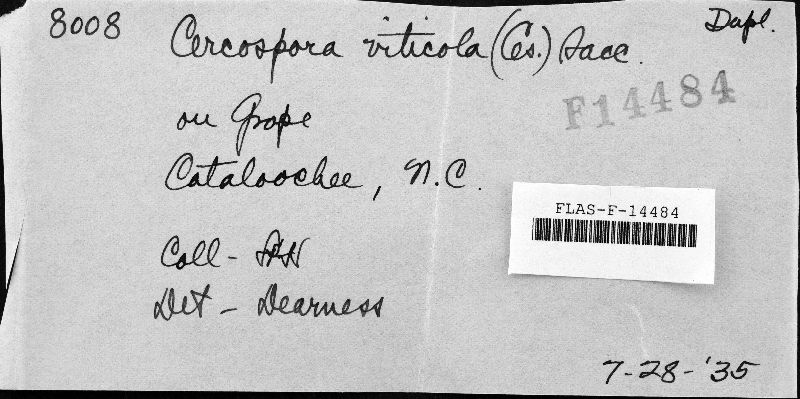 8008 Cercospora viticola (Ces.) Sacc. Dupl.
F14484
on Grape
Cataloochee, N.C.
FLAS-F-14484
Coll -
Det - Dearness
7-28-'35